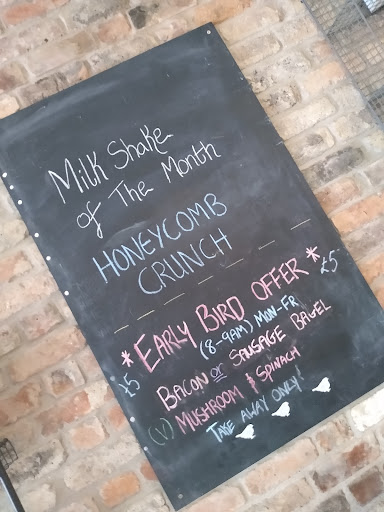 Milk Shake
of The Month
HONEYCOMB
CRUNCH
*EARLY BIRD OFFER*
£5 £5
(8-9AM) MON-FR
BACON or SAUSAGE BAGEL
(V) MUSHROOM & SPINACH
TAKE AWAY ONLY!